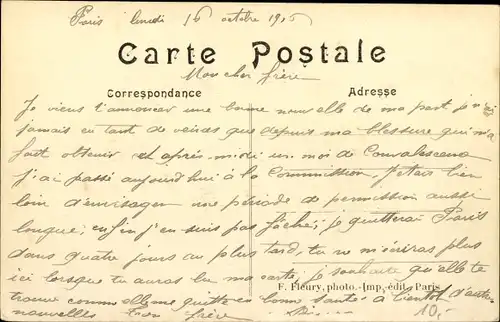 Paris lundi 16 octobre 1915
Carte Postale
Mon cher frère
Correspondance
Adresse
Je viens t'annoncer une bonne nouvelle de ma part je n'ai
jamais eu tant de veines que depuis ma blessure qui m'a
fait obtenir cet après-midi un moi de Convalescence
j'ai passé aujourd'hui à la Commission, j'étais bien
loin d'envisager une période de permission aussi
longue; enfin j'en suis pas fâché; je quitterai Paris
dans quatre jours au plus tard, tu ne m'écriras plus
ici lorsque tu auras lu ma carte; je souhaite qu'elle te
F. Fleury, photo.-Imp.-édit., Paris
trouve comme elle me quitte en bonne santé. à bientôt d'autre
nouvelles Ton frère
10,-